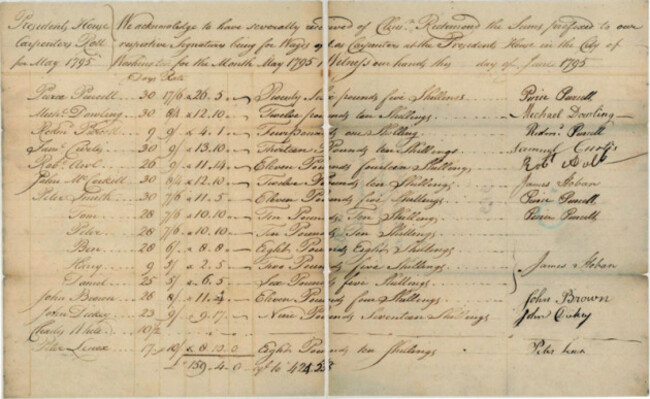 Presidents House We acknowledge to have severally received of Chrisr. Richmond the Sums prefixed to our
Carpenters Roll respective Signatures being for Wages as Carpenters at the Presidents House in the City of
for May 1795 Washington for the Month May 1795 Witness our hands this day of June 1795
Days Rate
Pierce Purcell 30 17/6 £26.5 Twenty Six pounds five Shillings Peirce Purcell
Michl. Dowling 30 8/4 £12.10 Twelve pounds ten Shillings Michael Dowling
Redmd. Purcell 9 9/ £4.1 Four Pounds one Shilling Redmd. Purcell
Saml. Curtis 30 9/ £13.10 Thirteen Pounds ten Shillings Samuel Curtis
Robt. Aul 26 9/ £11.14 Eleven Pounds fourteen Shillings Robt.
John Mc Corkill 30 8/4 £12.10 Twelve Pounds ten Shillings James Hoban
Peter Smith 30 7/6 £11.5 Eleven Pounds five Shillings Pierce Purcell
Tom 28 7/6 £10.10 Ten Pounds Ten Shillings Pierce Purcell
Peter 28 7/6 £10.10 Ten Pounds Ten Shillings
Ben 28 6/ £8.8 Eight Pounds Eight Shillings
Harry 9 5/ £2.5 Two Pounds five Shillings James Hoban
Daniel 25 5/ £6.5 Six Pounds five Shillings
John Brown 28 8/ £11.4 Eleven Pounds four Shillings John Brown
John Dickey 23 9/ £9.17 Nine Pounds Seventeen Shillings John
Charly White 10/2
Peter Lenox 17 10/ £8.10.0 Eight Pounds ten Shillings Peter Lenox
£159.4.0 eql. to 424.53